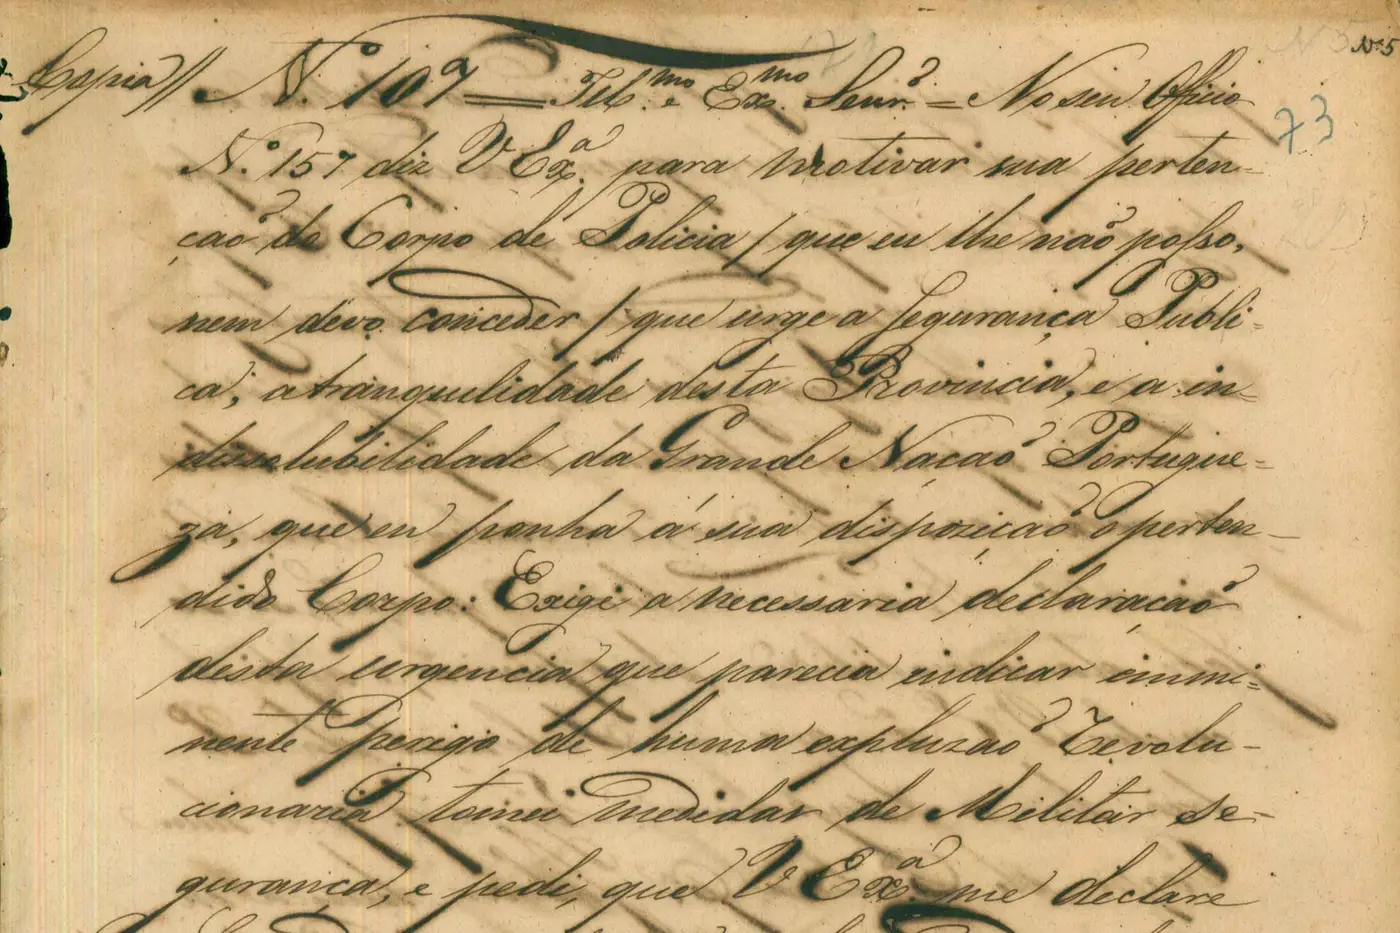 Copia// N.º 109 = Ill.mo e Ex.mo Senr.º = No seu Officio
Nº 5
73
N.º 157 diz V Ex.ª para motivar sua perten-
ção do Corpo de Policia / que eu lhe não posso,
nem devo conceder / que urge a segurança Publi=
ca, a tranquilidade desta Provincia, e a in=
dissolubilidade da Grande Nação Portugue=
za, que eu ponha á sua dispozição o perten-
dido Corpo: Exigi a necessaria declaração
desta urgencia que parecia indicar immi=
nente perigo de huma expluzaõ Revolu-
cionaria tomei medidas de Militar se-
gurança, e pedi, que V Ex.ª me declare